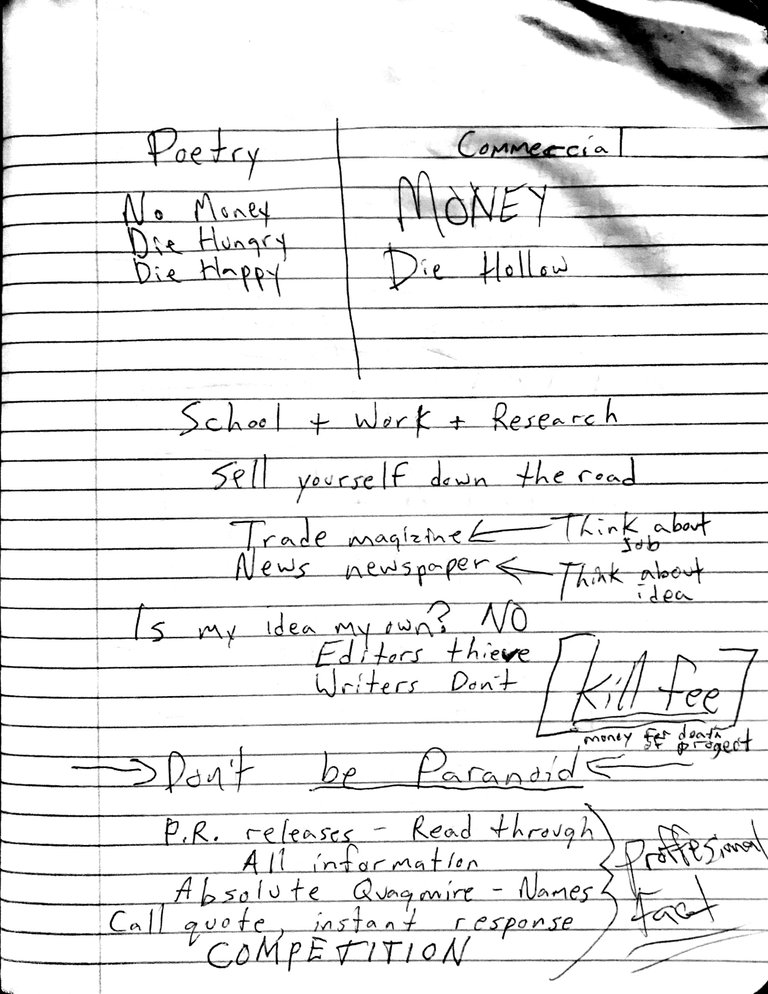 Poetry
No Money
Die Hungry
Die Happy
Commercial
MONEY
Die Hollow
School + Work + Research
Sell yourself down the road
Trade magizine ← Think about Job
News newspaper ← Think about idea
Is my idea my own? NO
Editors thieve
Writers Don't
Kill fee
money for death of progect
→ Don't be Paranoid ←
P.R. releases - Read through
All information
Absolute Quagmire - Names
Call quote, instant response
COMPETITION
Proffesional
Fact